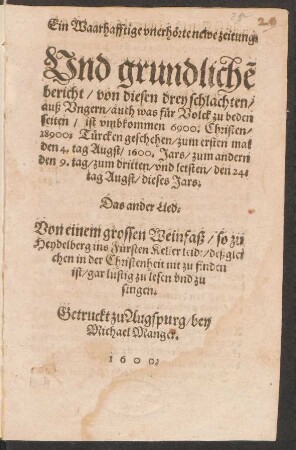 Ein Waarhafftige vnerhörte newe zeitung
Vnd grundlichẽ
bericht / von diesen drey schlachten /
auß Vngern / auch was für Volck zu beden
seiten / ist vmbkommen 6900. Christen /
28900. Türcken geschehen / zum ersten mal
den 4. tag Augst / 1600. Jars / zum andern
den 9. tag / zum dritten / vnd letsten / den 24.
tag Augst / dieses Jars.
Das ander Lied.
Von einem grossen Weinfaß / so zů
Heydelberg ins Fürsten Keller leid / deßglei
chen in der Christenheit nit zu finden
ist / gar lustig zu lesen vnd zu
singen.
Getruckt zu Augspurg / bey
Michael Manger.
1600.